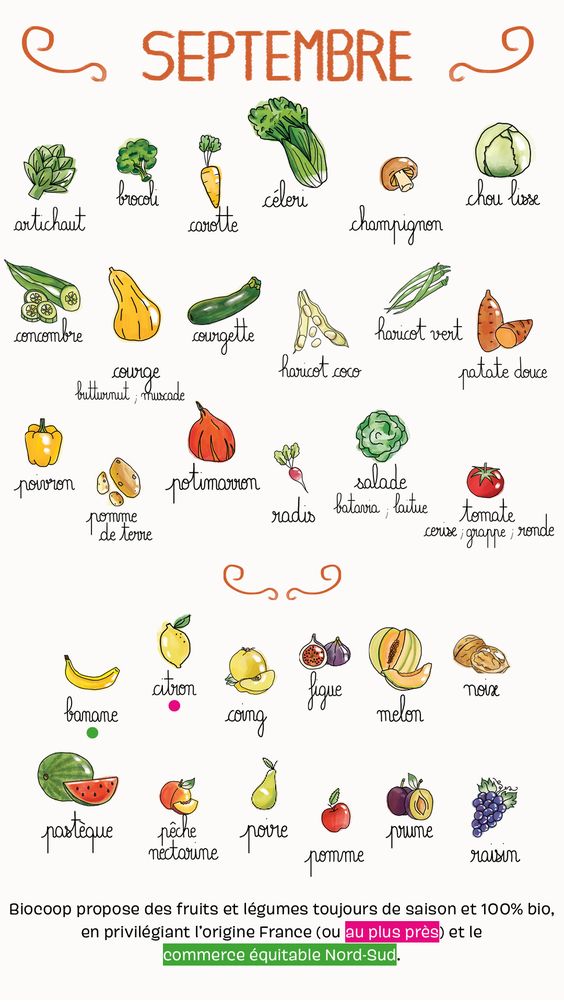 SEPTEMBRE
artichaut
brocoli
carotte
céleri
champignon
chou lisse
concombre
courge
butturnut ; muscade
courgette
haricot coco
haricot vert
patate douce
poivron
pomme
de terre
potimarron
radis
salade
batavia ; laitue
tomate
cerise ; grappe ; ronde
banane
citron
coing
figue
melon
noix
pastèque
pêche
nectarine
poire
pomme
prune
raisin
Biocoop propose des fruits et légumes toujours de saison et 100% bio,
en privilégiant l'origine France (ou au plus près) et le
commerce équitable Nord-Sud.